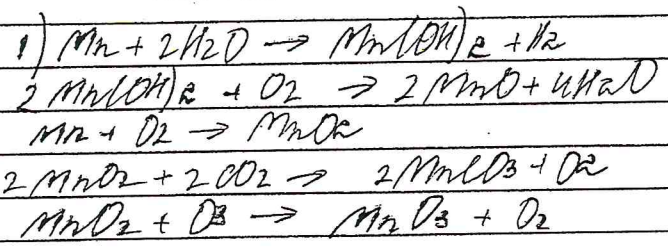 1) Mn + 2H2O → Mn(OH)2 + H2
2 Mn(OH)2 + O2 → 2 MnO + 4H2O
Mn + O2 → MnO2
2 MnO2 + 2CO2 → 2MnCO3 + O2
MnO2 + O3 → MnO3 + O2